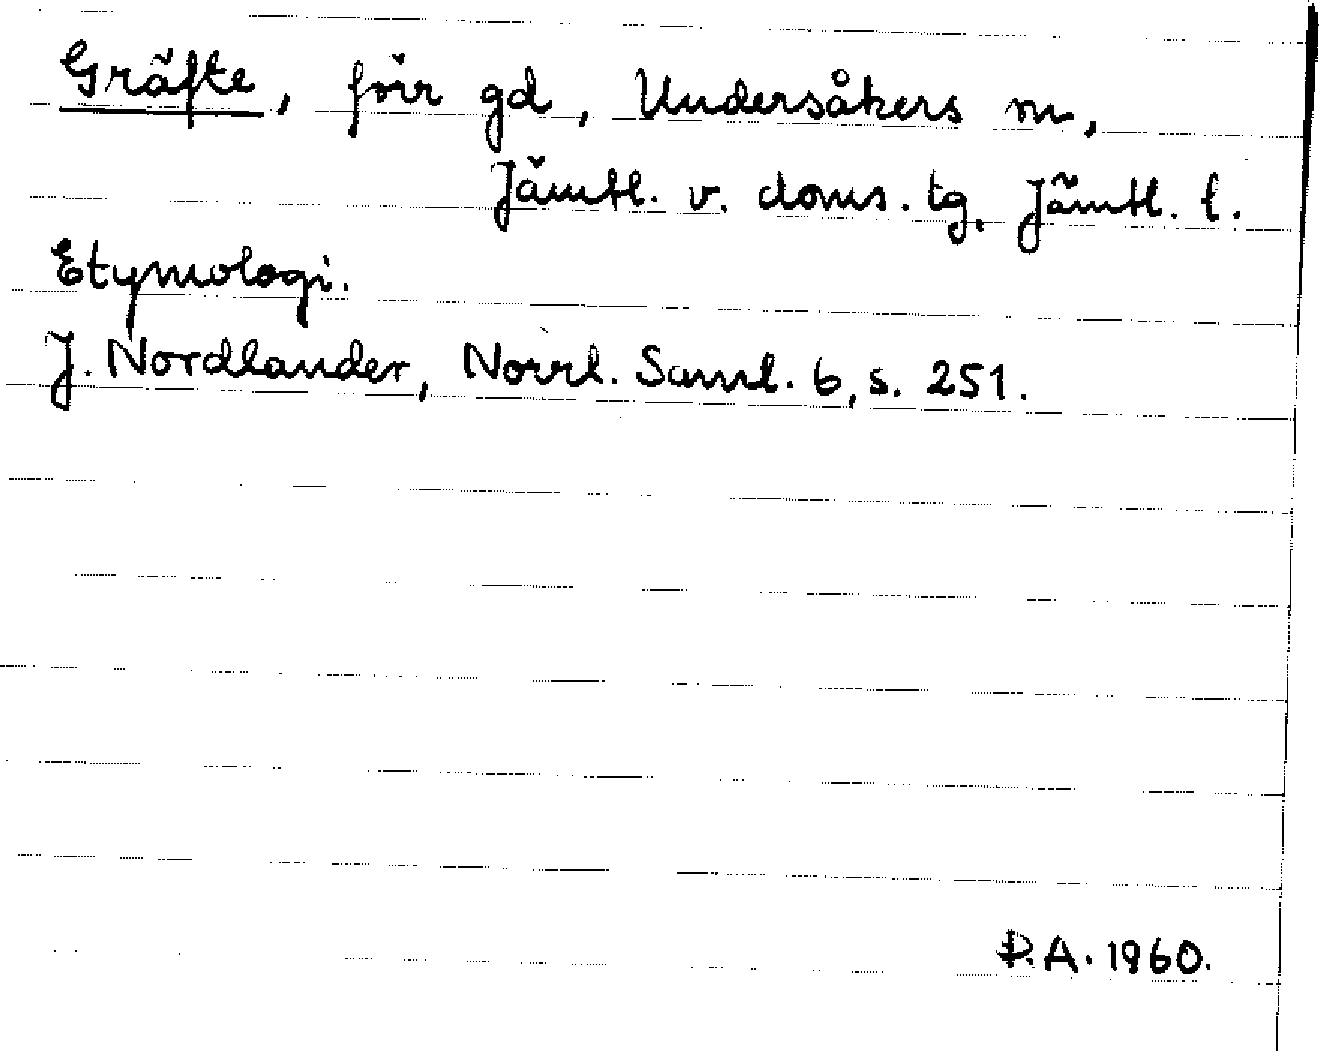 Gräfte, förr gd, Undersåkers sn,
Jämtl. v. doms. tg, Jämtl. l.
Etymologi.
J. Nordlander, Norrl. Saml. 6, s. 251.
P.A. 1960.